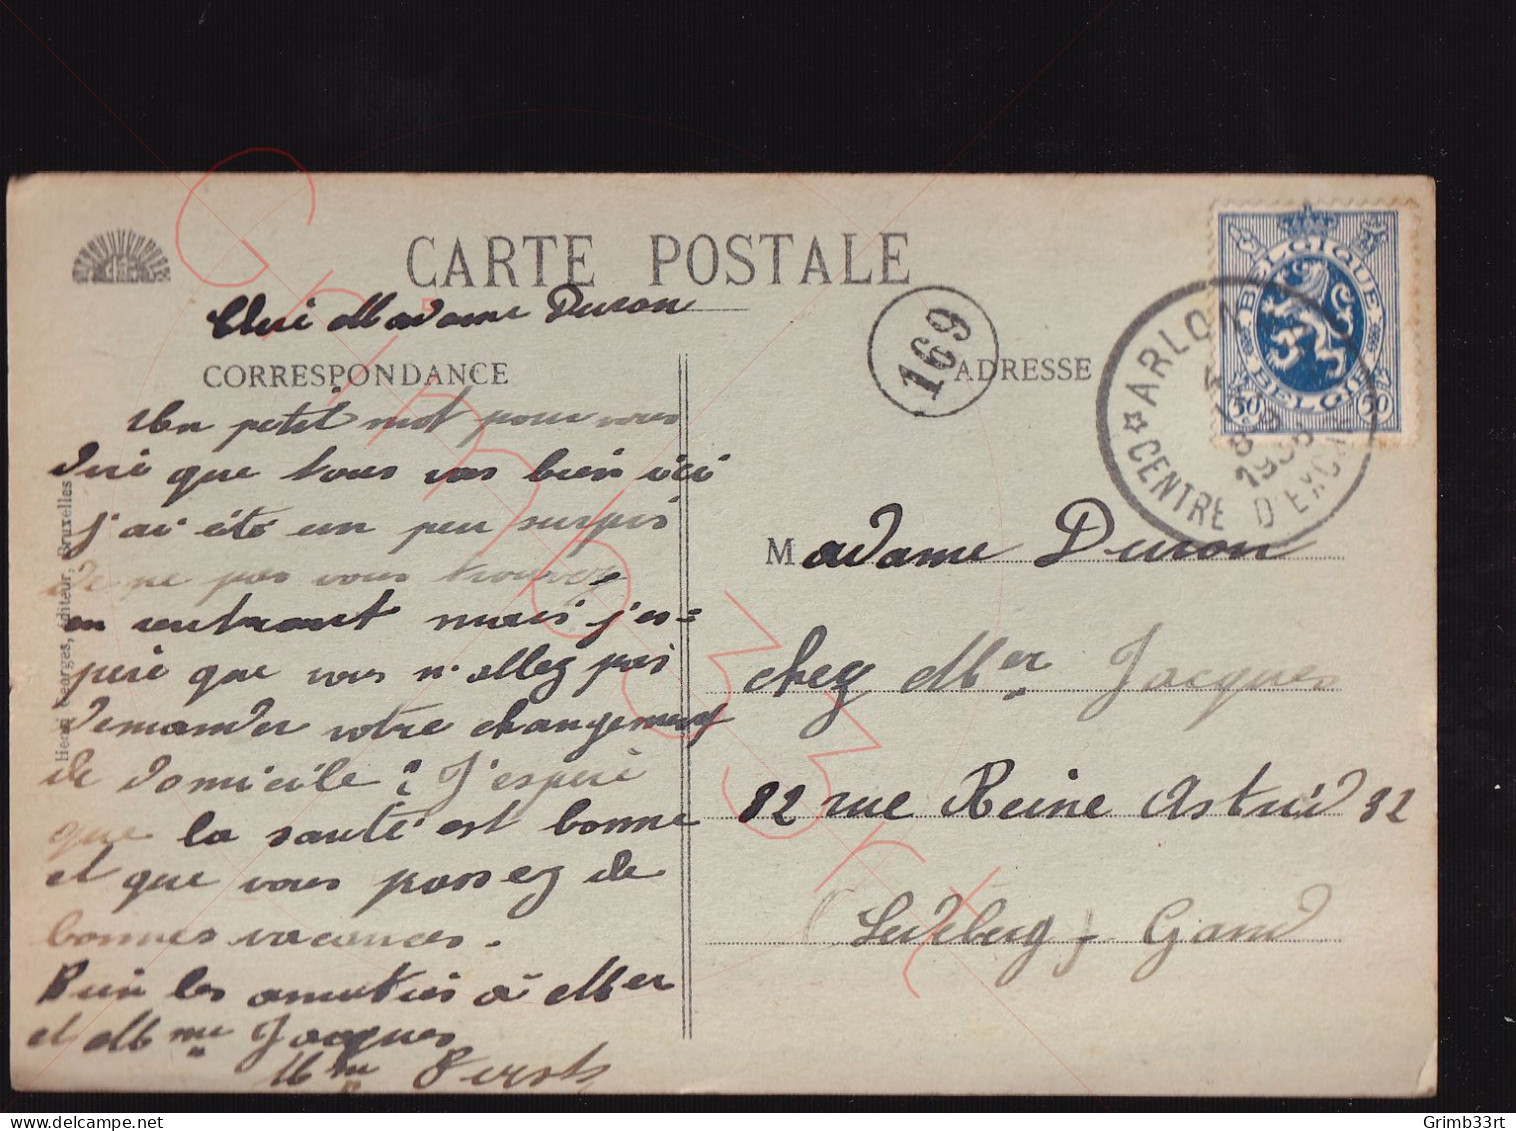 CARTE POSTALE
Cheri Madame Duron
CORRESPONDANCE
Un petit mot pour vous
dire que tous vas bien ici
j'ai été un peu surpris
de ne pas vous trouvez
en rentrant mais j'es=
pere que vous n'allez pas
demander votre changement
de domicile ? J'espere
que la santé est bonne
et que vous passez de
bonnes vacances.
Bien les amities à Mer
et Mme Jacques
Mme
Henri Georges, éditeur, Bruxelles
169
ADRESSE
BELGIQUE
BELGIË
50 50
ARLON
1935
CENTRE D'EXC
Madame Duron
chez Mer Jacques
82 rue Reine Astrid 82
(Ledeberg) Gand
Grimb33rt
Grimb33rt